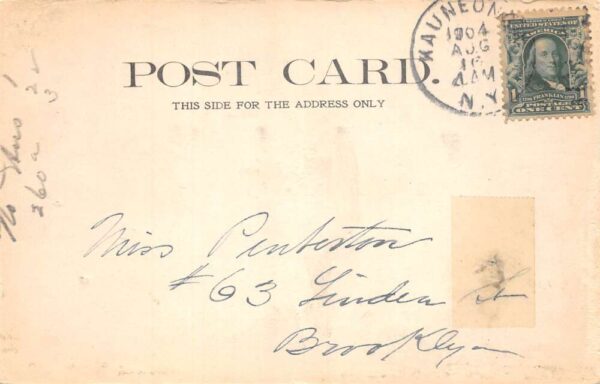 KAUNEON
1904
AUG
16
4 AM
N.Y.
UNITED STATES OF
AMERICA
1 FRANKLIN 1
POSTAGE
ONE CENT
POST CARD.
THIS SIDE FOR THE ADDRESS ONLY
Miss Penberton
#63 Linden St
Brooklyn